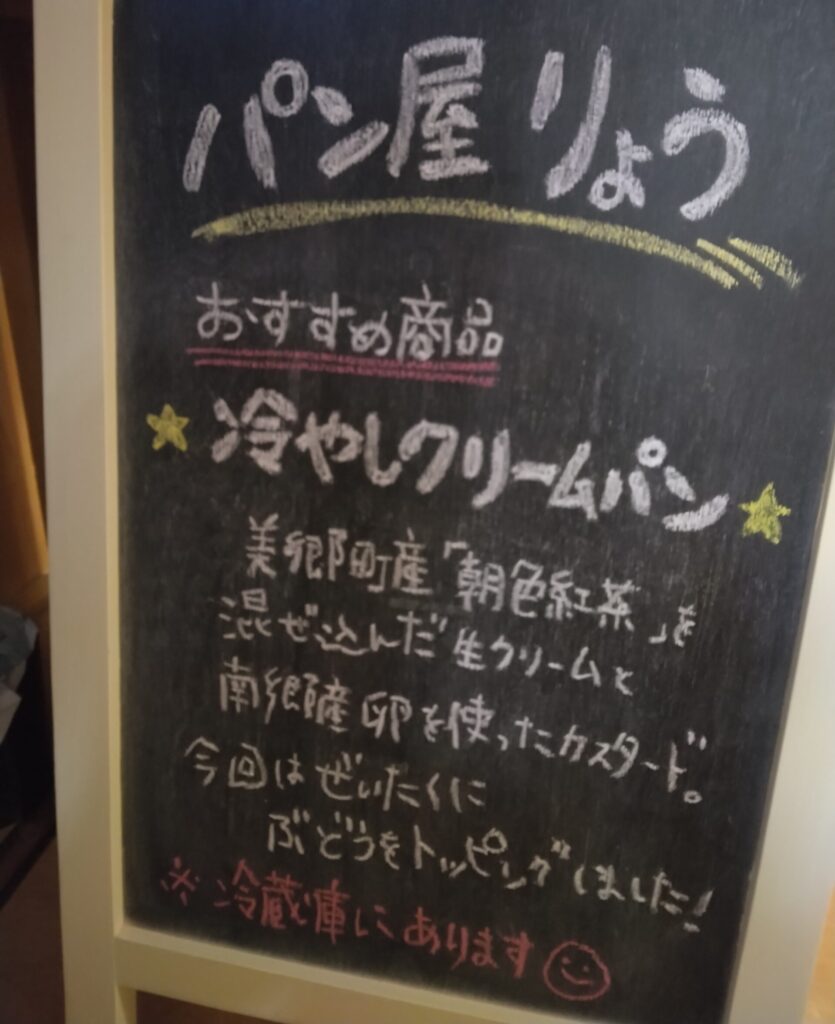 パン屋 りょう
おすすめ商品
冷やしクリームパン
美郷町産「朝色紅茶」を
混ぜ込んだ生クリームと
南郷産卵を使ったカスタード。
今回はぜいたくに
ぶどうをトッピングしました!
※冷蔵庫にあります